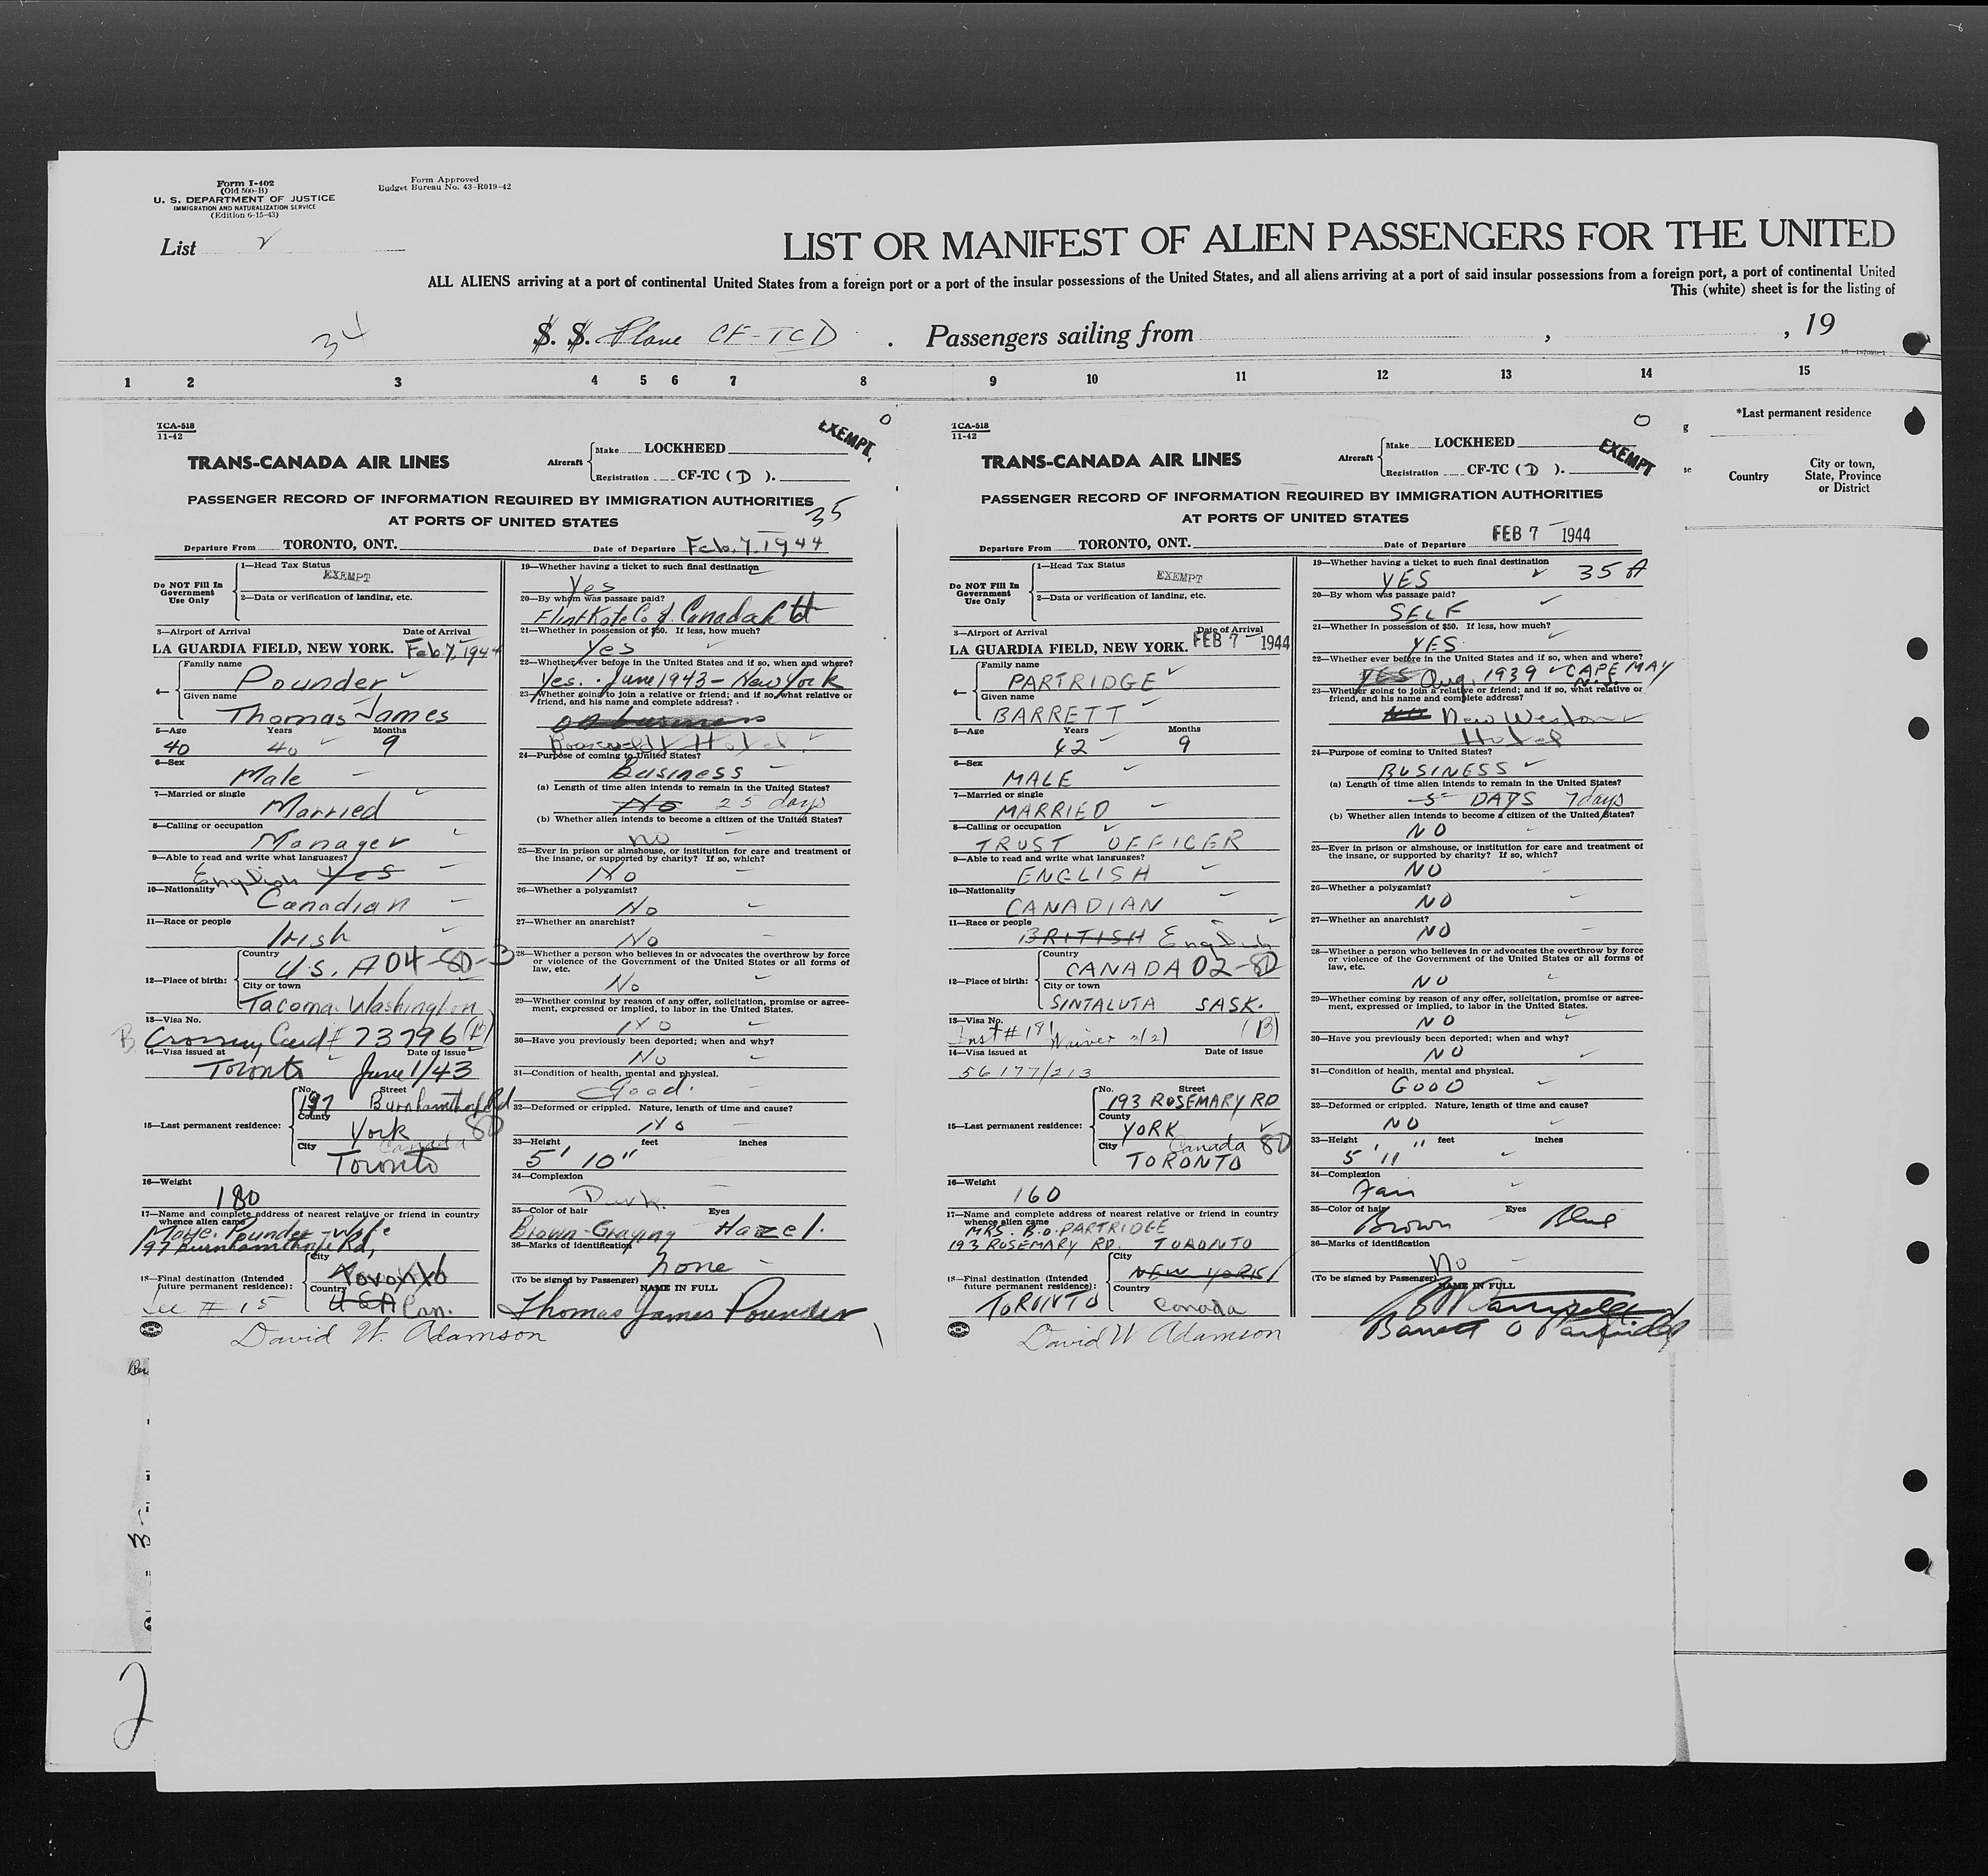 Form I-402
(Old 500-B)
U. S. DEPARTMENT OF JUSTICE
IMMIGRATION AND NATURALIZATION SERVICE
(Edition 6-15-43)
Form Approved
Budget Bureau No. 43-R019-42
List
LIST OR MANIFEST OF ALIEN PASSENGERS FOR THE UNITED
ALL ALIENS arriving at a port of continental United States from a foreign port or a port of the insular possessions of the United States, and all aliens arriving at a port of said insular possessions from a foreign port, a port of continental United
This (white) sheet is for the listing of
34
S. S. Plane CF-TCD . Passengers sailing from , , 19
1 2 3 4 5 6 7 8 9 10 11 12 13 14 15
*Last permanent residence
Country
City or town, State, Province or District
TCA-518
11-42
EXEMPT.
0
TRANS-CANADA AIR LINES
Aircraft
Make LOCKHEED
Registration CF-TC ( D ).
PASSENGER RECORD OF INFORMATION REQUIRED BY IMMIGRATION AUTHORITIES
AT PORTS OF UNITED STATES
35
Departure From TORONTO, ONT. Date of Departure Feb. 7. 1944
Do NOT Fill In Government Use Only
1—Head Tax Status
EXEMPT
2—Data or verification of landing, etc.
3—Airport of Arrival Date of Arrival
LA GUARDIA FIELD, NEW YORK. Feb 7, 1944
4—
Family name
Pounder
Given name
Thomas James
5—Age Years Months
40 40 9
6—Sex
Male
7—Married or single
Married
8—Calling or occupation
Manager
9—Able to read and write what languages?
English Yes
10—Nationality
Canadian
11—Race or people
Irish
12—Place of birth:
Country
U.S. A 04-80-3
City or town
Tacoma Washington
13—Visa No.
B Crossing Card # 73796 (B)
14—Visa issued at Date of issue
Toronto June 1/43
15—Last permanent residence:
No. Street
197 Burnhamthorpe Rd
County
York 80
City Canada
Toronto
16—Weight
180
17—Name and complete address of nearest relative or friend in country whence alien came
Pounder - Wife
197 Burnhamthorpe Rd,
18—Final destination (Intended future permanent residence):
City
Toronto
Country
USA Can.
See # 15
David W. Adamson
19—Whether having a ticket to such final destination
Yes
20—By whom was passage paid?
Flintkote Co of Canada Ltd
21—Whether in possession of $50. If less, how much?
Yes
22—Whether ever before in the United States and if so, when and where?
Yes. - June 1943 - New York
23—Whether going to join a relative or friend; and if so, what relative or friend, and his name and complete address?
on business
Roosevelt Hotel
24—Purpose of coming to United States?
Business
(a) Length of time alien intends to remain in the United States?
No 25 days
(b) Whether alien intends to become a citizen of the United States?
no
25—Ever in prison or almshouse, or institution for care and treatment of the insane, or supported by charity? If so, which?
No
26—Whether a polygamist?
No
27—Whether an anarchist?
No
28—Whether a person who believes in or advocates the overthrow by force or violence of the Government of the United States or all forms of law, etc.
No
29—Whether coming by reason of any offer, solicitation, promise or agreement, expressed or implied, to labor in the United States.
No
30—Have you previously been deported; when and why?
No
31—Condition of health, mental and physical.
Good.
32—Deformed or crippled. Nature, length of time and cause?
No
33—Height feet inches
5' 10"
34—Complexion
Dark.
35—Color of hair Eyes
Brown-Graying Hazel.
36—Marks of identification
None
(To be signed by Passenger) NAME IN FULL
Thomas James Pounder
TCA-518
11-42
EXEMPT
0
TRANS-CANADA AIR LINES
Aircraft
Make LOCKHEED
Registration CF-TC ( D ).
PASSENGER RECORD OF INFORMATION REQUIRED BY IMMIGRATION AUTHORITIES
AT PORTS OF UNITED STATES
Departure From TORONTO, ONT. Date of Departure FEB 7 1944
Do NOT Fill In Government Use Only
1—Head Tax Status
EXEMPT
2—Data or verification of landing, etc.
3—Airport of Arrival Date of Arrival
LA GUARDIA FIELD, NEW YORK. FEB 7 1944
4—
Family name
PARTRIDGE
Given name
BARRETT
5—Age Years Months
42 9
6—Sex
MALE
7—Married or single
MARRIED
8—Calling or occupation
TRUST OFFICER
9—Able to read and write what languages?
ENGLISH
10—Nationality
CANADIAN
11—Race or people
BRITISH English
12—Place of birth:
Country
CANADA 02-80
City or town
SINTALUTA SASK.
13—Visa No.
Inst # 181 Waiver (B)
14—Visa issued at Date of issue
56177/213
15—Last permanent residence:
No. Street
193 ROSEMARY RD
County
YORK
City Canada 80
TORONTO
16—Weight
160
17—Name and complete address of nearest relative or friend in country whence alien came
MRS. B.O. PARTRIDGE
193 ROSEMARY RD. TORONTO
18—Final destination (Intended future permanent residence):
City
NEW YORK
Country
TORONTO Canada
David W Adamson
19—Whether having a ticket to such final destination
YES 35 A
20—By whom was passage paid?
SELF
21—Whether in possession of $50. If less, how much?
YES
22—Whether ever before in the United States and if so, when and where?
YES Aug. 1939 CAPE MAY N.J.
23—Whether going to join a relative or friend; and if so, what relative or friend, and his name and complete address?
NO New Weston
Hotel
24—Purpose of coming to United States?
BUSINESS
(a) Length of time alien intends to remain in the United States?
5 DAYS 7 days
(b) Whether alien intends to become a citizen of the United States?
NO
25—Ever in prison or almshouse, or institution for care and treatment of the insane, or supported by charity? If so, which?
NO
26—Whether a polygamist?
NO
27—Whether an anarchist?
NO
28—Whether a person who believes in or advocates the overthrow by force or violence of the Government of the United States or all forms of law, etc.
NO
29—Whether coming by reason of any offer, solicitation, promise or agreement, expressed or implied, to labor in the United States.
NO
30—Have you previously been deported; when and why?
NO
31—Condition of health, mental and physical.
GOOD
32—Deformed or crippled. Nature, length of time and cause?
NO
33—Height feet inches
5' 11"
34—Complexion
Fair
35—Color of hair Eyes
Brown Blue
36—Marks of identification
No
(To be signed by Passenger) NAME IN FULL
Barrett O Partridge
2